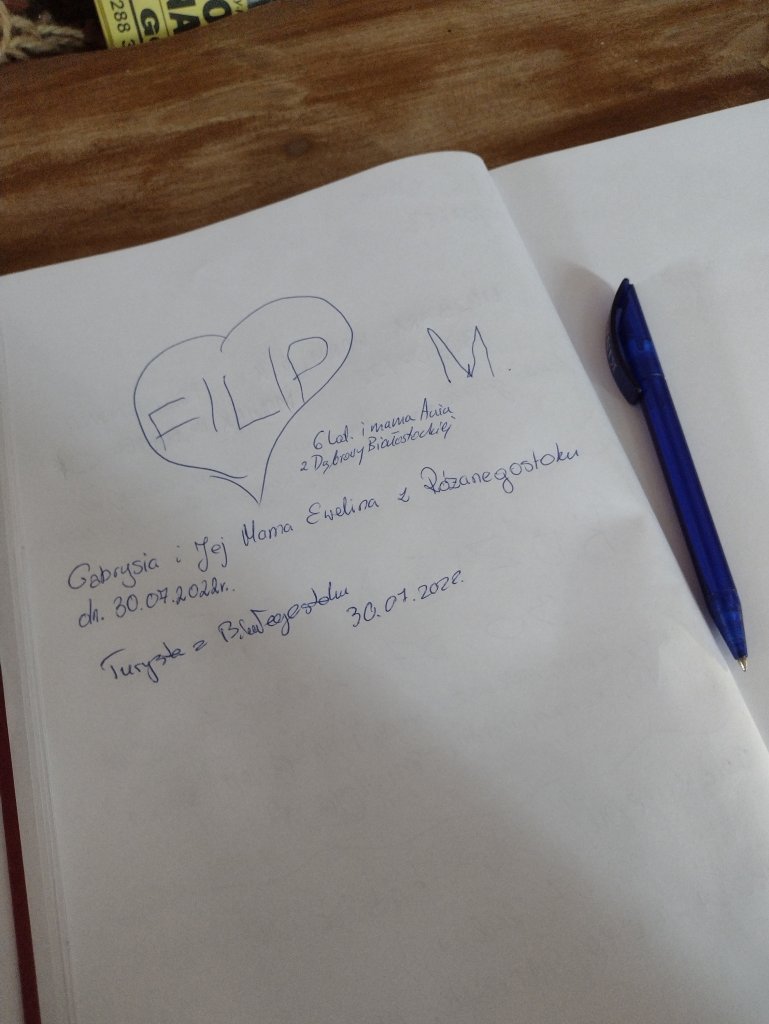 288
FILIP
M.
6 lat. i mama Ania
z Dąbrowy Białostockiej
Gabrysia i Jej Mama Ewelina z Różanegostoku
dn. 30.07.2022r.
Turysta z Białegostoku 30.07.2022r.